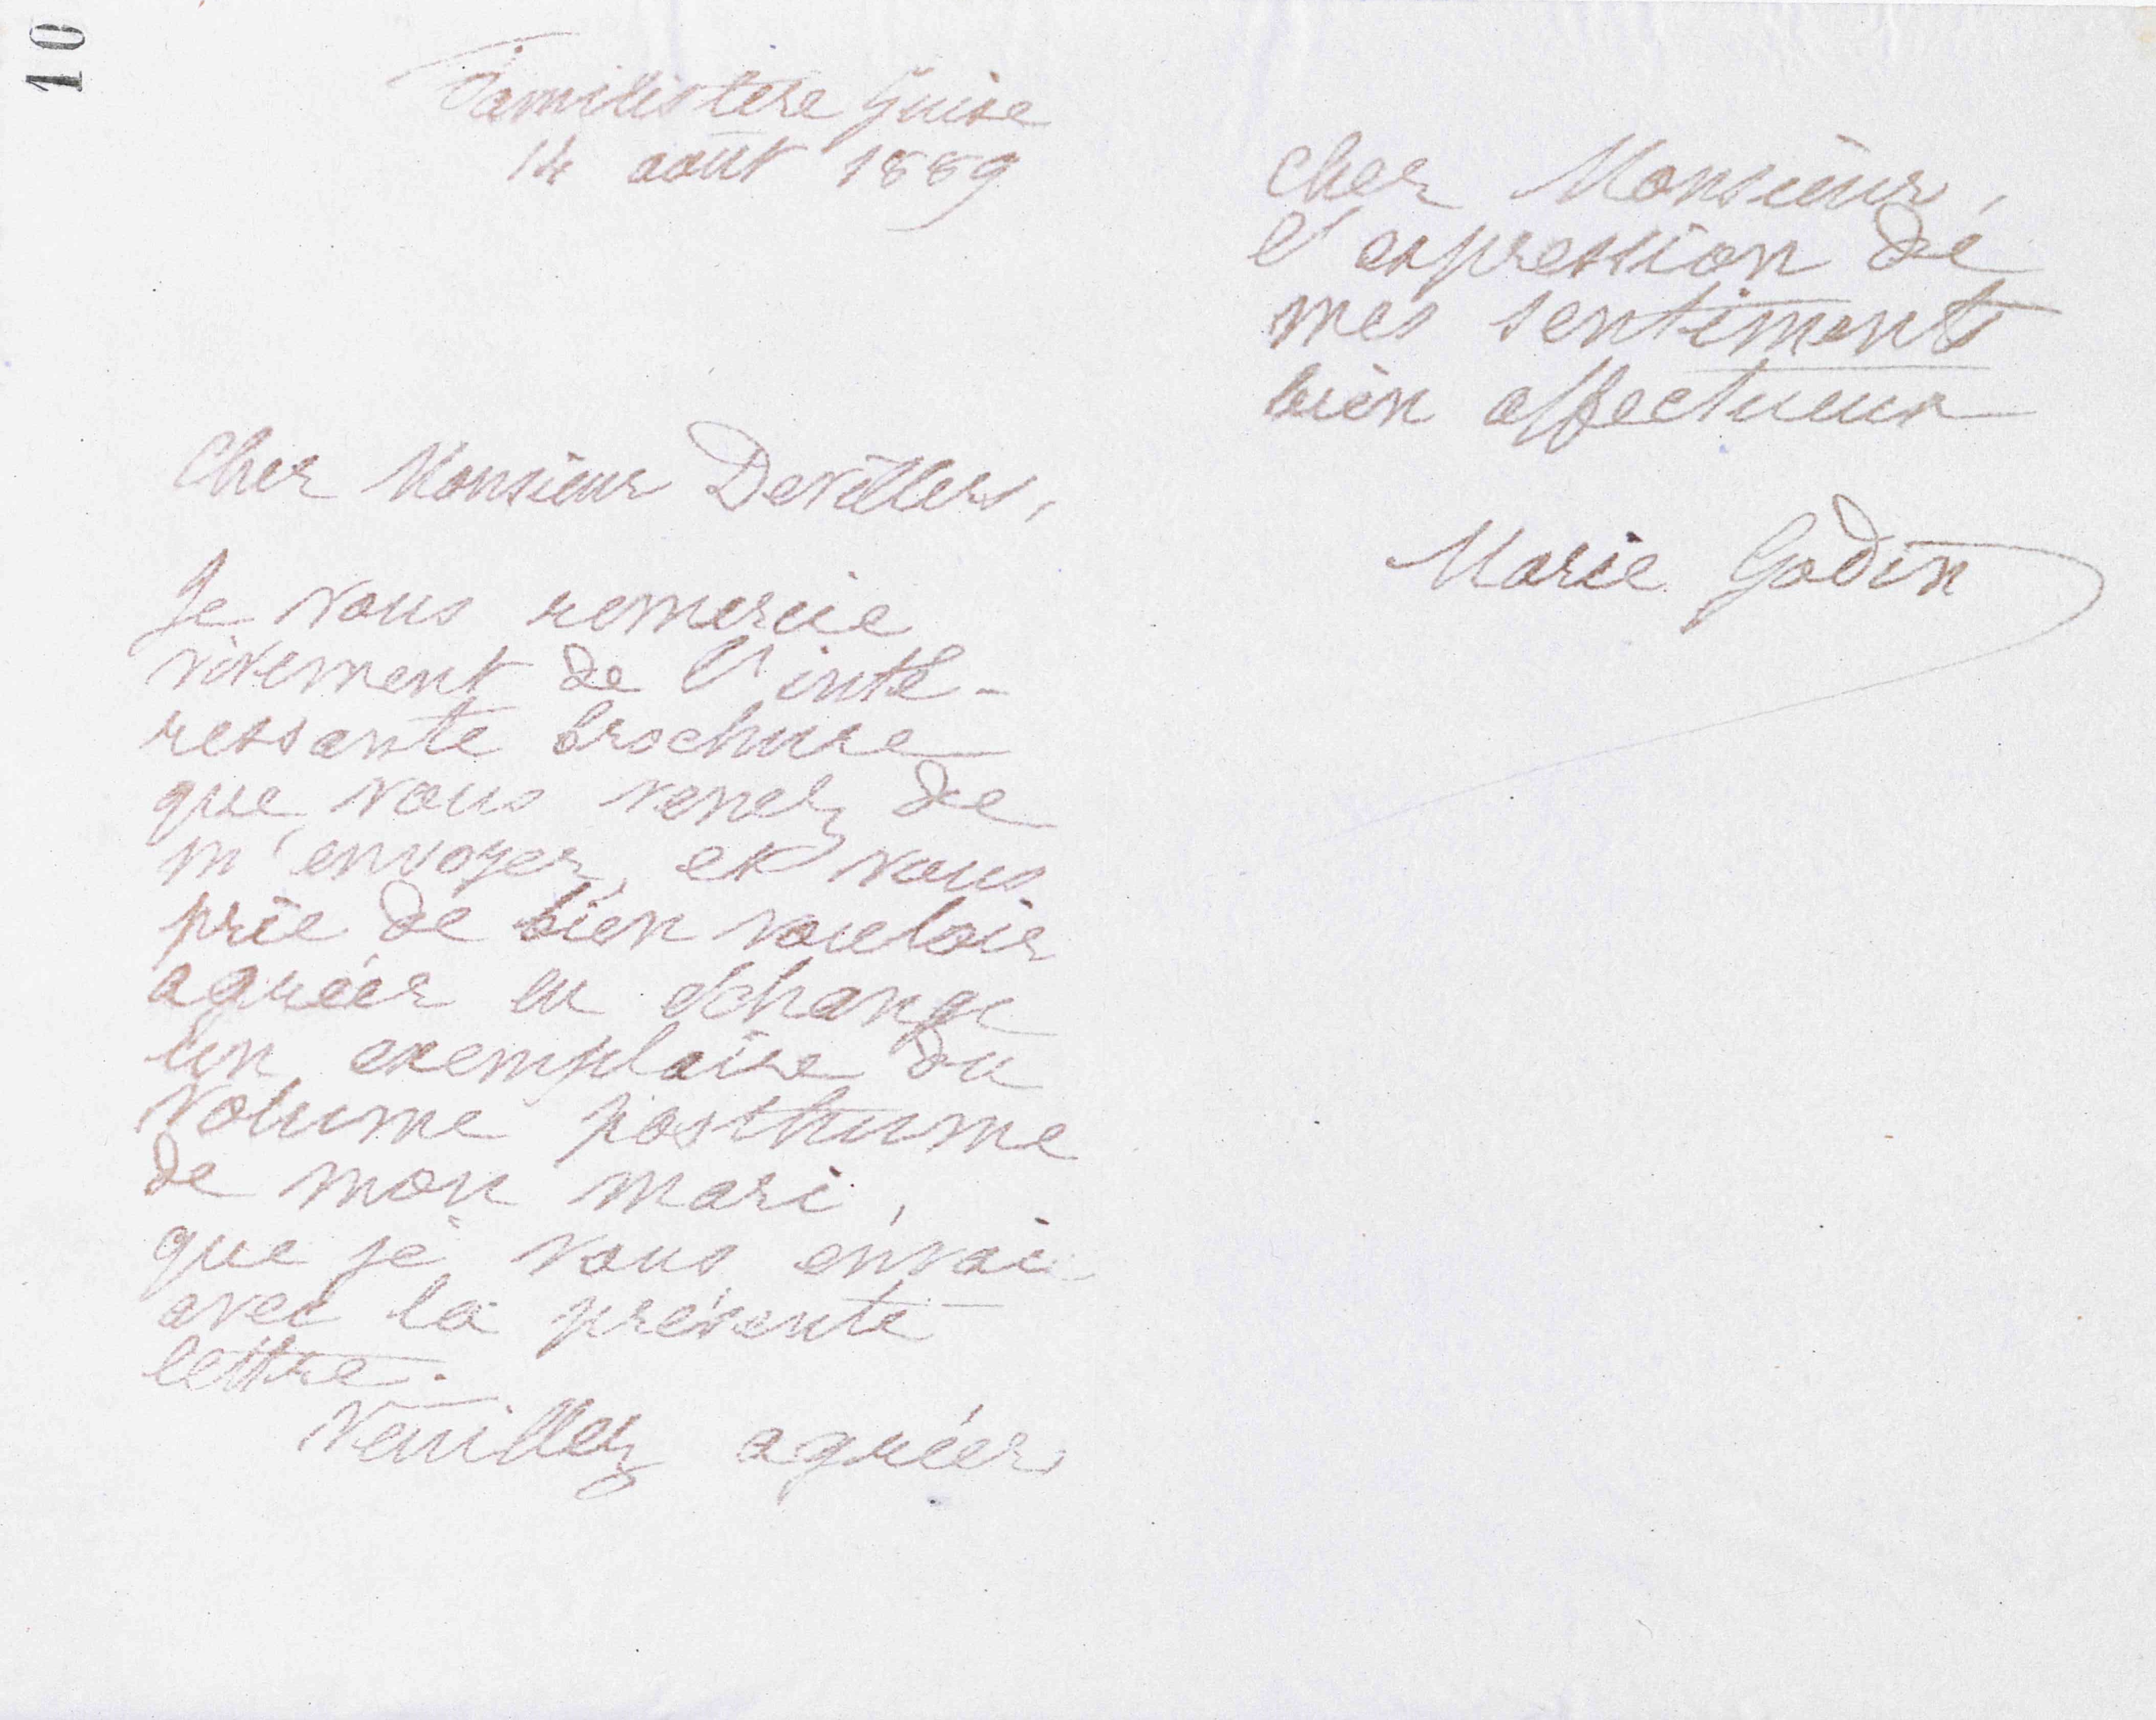 10
Familistère Guise
14 août 1889
Cher Monsieur Devillers,
Je vous remercie
vivement de l'inté-
ressante brochure
que vous venez de
m'envoyer, et vous
prie de bien vouloir
agréer en échange
un exemplaire du
volume posthume
de mon mari,
que je vous envoie
avec la présente
lettre.
Veuillez agréer,
cher Monsieur,
l'expression de
mes sentiments
bien affectueux
Marie Godin